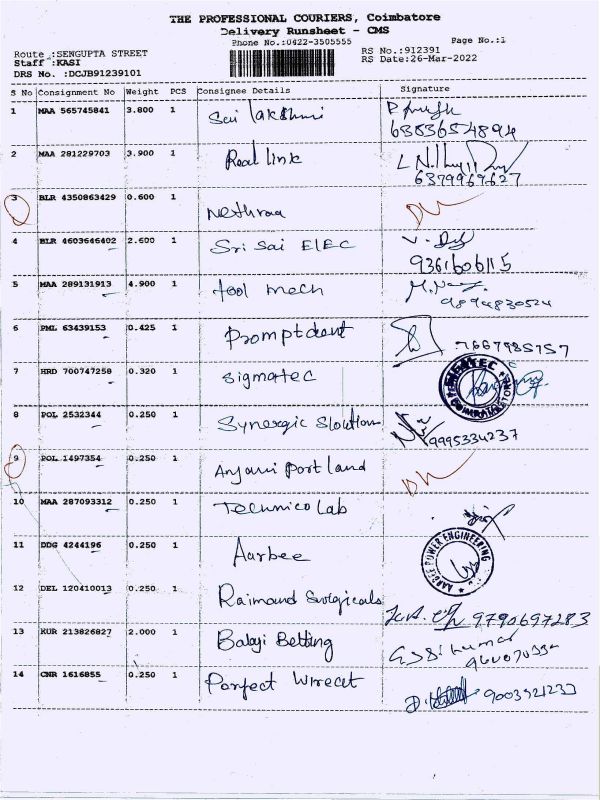 THE PROFESSIONAL COURIERS, Coimbatore
Delivery Runsheet - CMS
Phone No.:0422-3505555 Page No.:1
Route :SENGUPTA STREET RS No.:912391
Staff :KASI RS Date:26-Mar-2022
DRS No. :DCJB91239101
S No Consignment No Weight PCS Consignee Details Signature
1 MAA 565745841 3.800 1 Sai lakshmi
6383654894
2 MAA 281229703 3.900 1 Real link
6379969627
3 BLR 4350863429 0.600 1 Nethraa
4 BLR 4603646402 2.600 1 Sri Sai ELEC
9361606115
5 MAA 289131913 4.900 1 tool mech
9894830524
6 PML 63439153 0.425 1 Promptdent 7667985757
7 HRD 700747258 0.320 1 Sigmatec
COIMBATORE
8 POL 2532344 0.250 1 Synergic Sloution 9995334237
9 POL 1497354 0.250 1 Anjani Portland
10 MAA 287093312 0.250 1 Technico Lab
11 DDG 4244196 0.250 1 Aarbee
AARBEE POWER ENGINEERING
12 DEL 120410013 0.250 1 Raimond Surgicals 9790697283
13 KUR 213826827 2.000 1 Balaji Betting
14 CNR 1616855 0.250 1 Perfect 9003921233